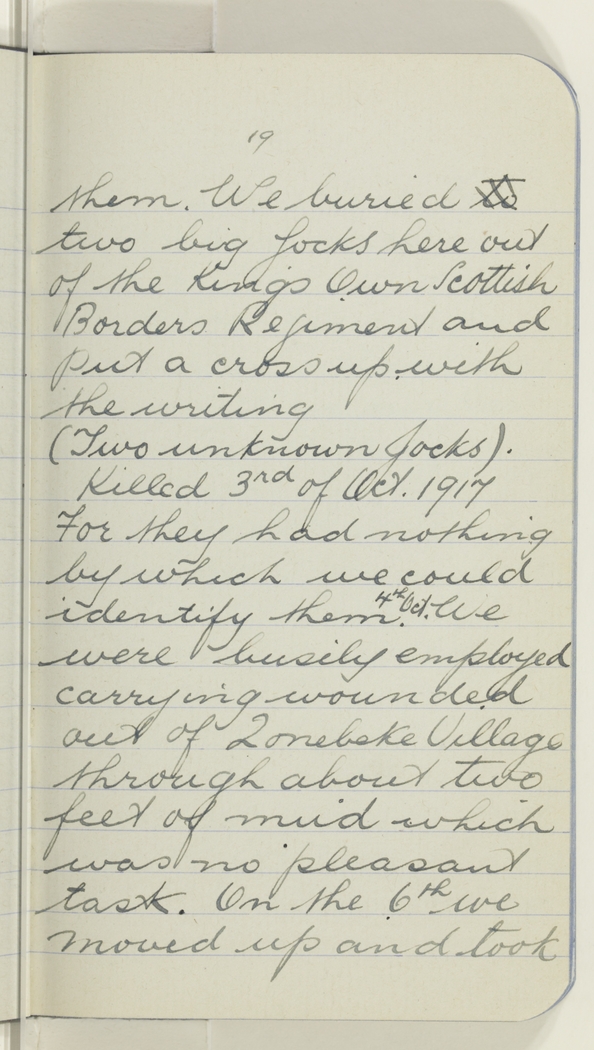 19
them. We buried to
two big Jocks here out
of the Kings Own Scottish
Borders Regiment and
put a cross up with
the writing
(Two unknown Jocks).
Killed 3rd of Oct. 1917
For they had nothing
by which we could
identify them. 4th Oct. We
were busily employed
carrying wounded
out of Zonebeke Village
through about two
feet of mud which
was no pleasant
task. On the 6th we
moved up and took